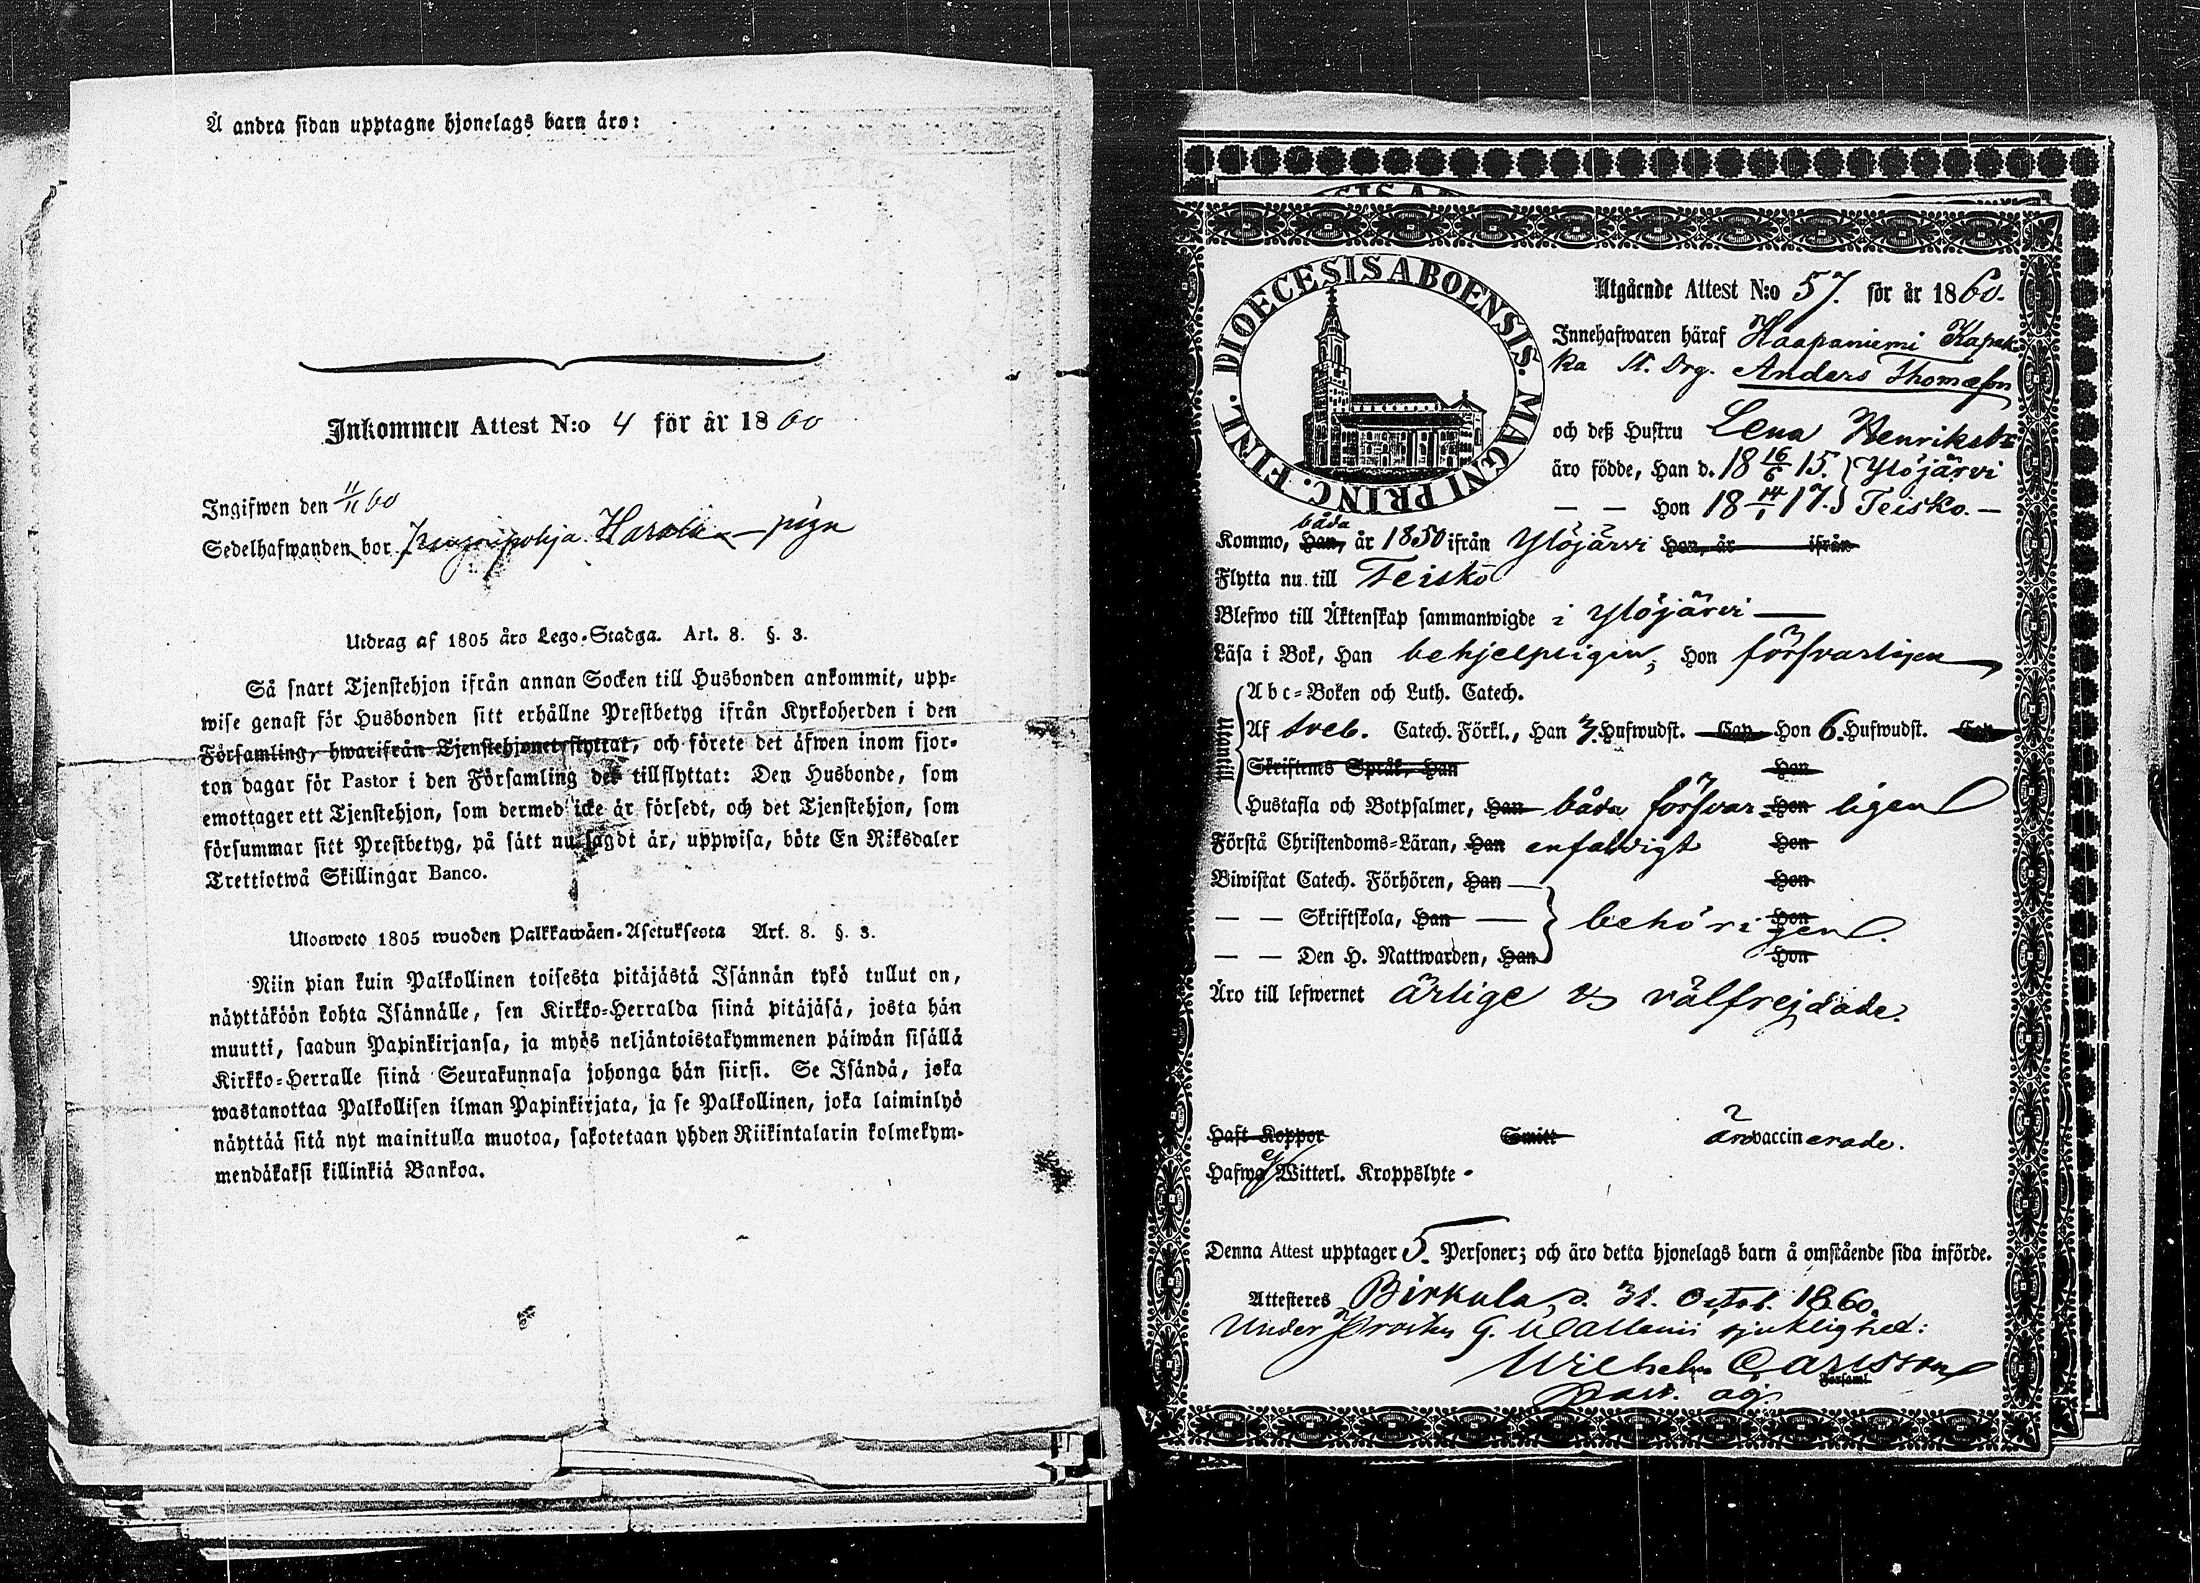 Å andra sidan upptagne hjonelags barn äro:
Inkommen Attest N:o 4 för år 1860
Ingifwen den 11/11 60
Sedelhafwanden bor Harala pign
Utdrag af 1805 års Lego-Stadga. Art. 8. §. 3.
Så snart Tjenstehjon ifrån annan Socken till Husbonden ankommit, upp-
wise genast för Husbonden sitt erhållne Prestbetyg ifrån Kyrkoherden i den
Församling, hwarifrån Tjenstehjonet flyttat, och förete det äfwen inom fjor-
ton dagar för Pastor i den Församling det tillflyttat: Den Husbonde, som
emottager ett Tjenstehjon, som dermed icke är försedt, och det Tjenstehjon, som
försummar sitt Prestbetyg, på sätt nu sagdt är, uppwisa, böte En Riksdaler
Trettiotwå Skillingar Banco.
Ulosweto 1805 wuoden Palkkawäen-Asetuksesta Art. 8. §. 3.
Niin pian kuin Palkollinen toisesta pitäjästä Isännän tykö tullut on,
näyttäköön kohta Isännälle, sen Kirkko-Herralda siinä pitäjäsä, josta hän
muutti, saadun Papinkirjansa, ja myös neljäntoistakymmenen päiwän sisällä
Kirkko-Herralle siinä Seurakunnasa johonga hän siirsi. Se Isändä, joka
wastanottaa Palkollisen ilman Papinkirjata, ja se Palkollinen, joka laiminlyö
näyttää sitä nyt mainitulla muotoa, sakotetaan yhden Riikintalarin kolmekym-
mendäkaksi killinkiä Bankoa.
DIOECESIS ABOENSIS. MAGNI PRINC. FINL.
Utgående Attest N:o 57. för år 1860.
Innehafwaren häraf Haapaniemi Kapak-
ka St. Drg. Anders Thomæson
och deß Hustru Lena Henriksdr
äro födde, Han d. 18 16/6 15. } Ylöjärvi
— — Hon 18 14/1 17. } Teisko. —
båda
Kommo, Han, år 1850 ifrån Ylöjärvi Hon, år ifrån
Flytta nu till Teisko
Blefwo till Äktenskap sammanwigde i Ylöjärvi —
Läsa i Bok, Han behjelpligen, Hon försvarligen
Utantill
Abc-Boken och Luth. Catech.
Af Sveb. Catech. Förkl., Han 3. Hufwudst. Cap Hon 6. Hufwudst. Cap
Skriftens Språk, Han Hon
Hustafla och Botpsalmer, Han båda försvar- Hon ligen
Förstå Christendoms-Läran, Han enfaldigt Hon
Biwistat Catech. Förhören, Han — Hon
— — Skriftskola, Han — } behörigen. Hon
— — Den H. Nattwarden, Han Hon
Äro till lefwernet ärlige & välfrejdade.
Haft Koppor Smitt äro vaccinerade.
Hafwa ej Witterl. Kroppslyte -
Denna Attest upptager 5. Personer; och äro detta hjonelags barn å omstående sida införde.
Attesteres Birkala, d. 31. Octob. 1860.
Under Prosten G. Wallenii sjuklighet:
Wilhelm Carlsson
Församl.
Past. adj.